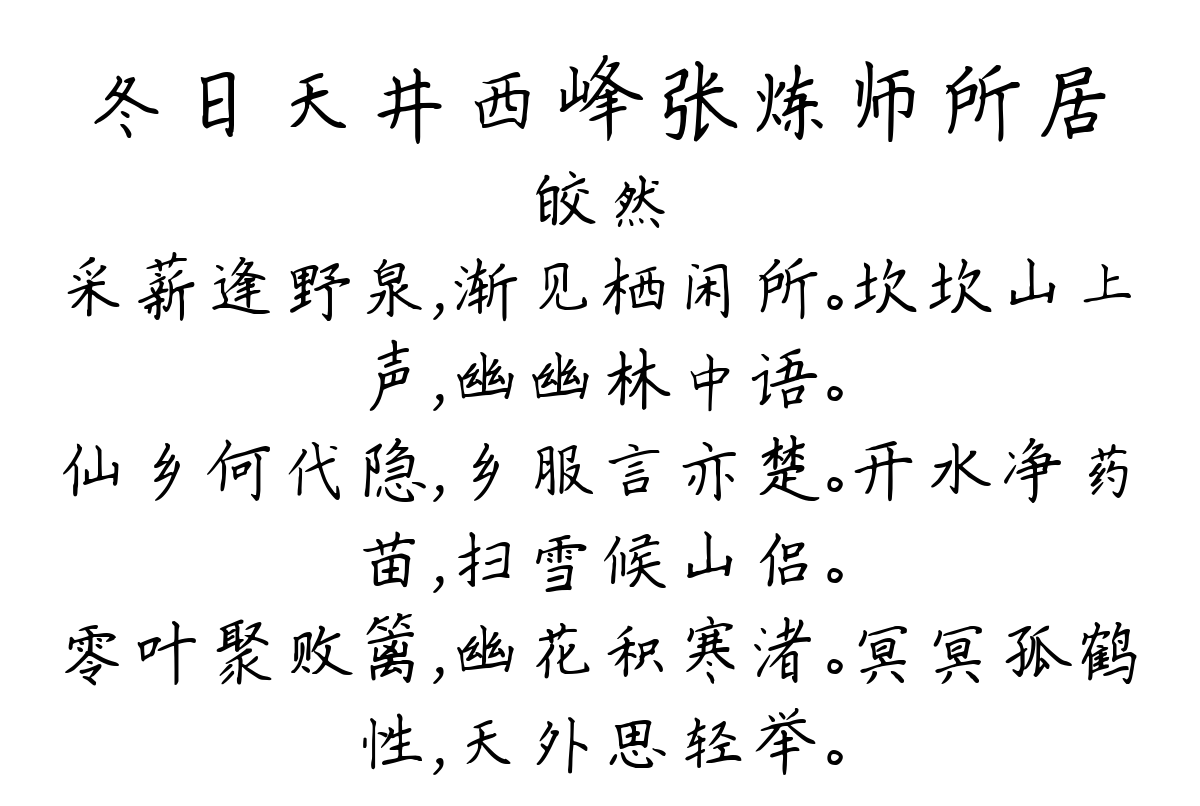 冬日天井西峰张炼师所居
皎然
采薪逢野泉,渐见栖闲所。坎坎山上
声,幽幽林中语。
仙乡何代隐,乡服言亦楚。开水净药
苗,扫雪候山侣。
零叶聚败篱,幽花积寒渚。冥冥孤鹤
性,天外思轻举。